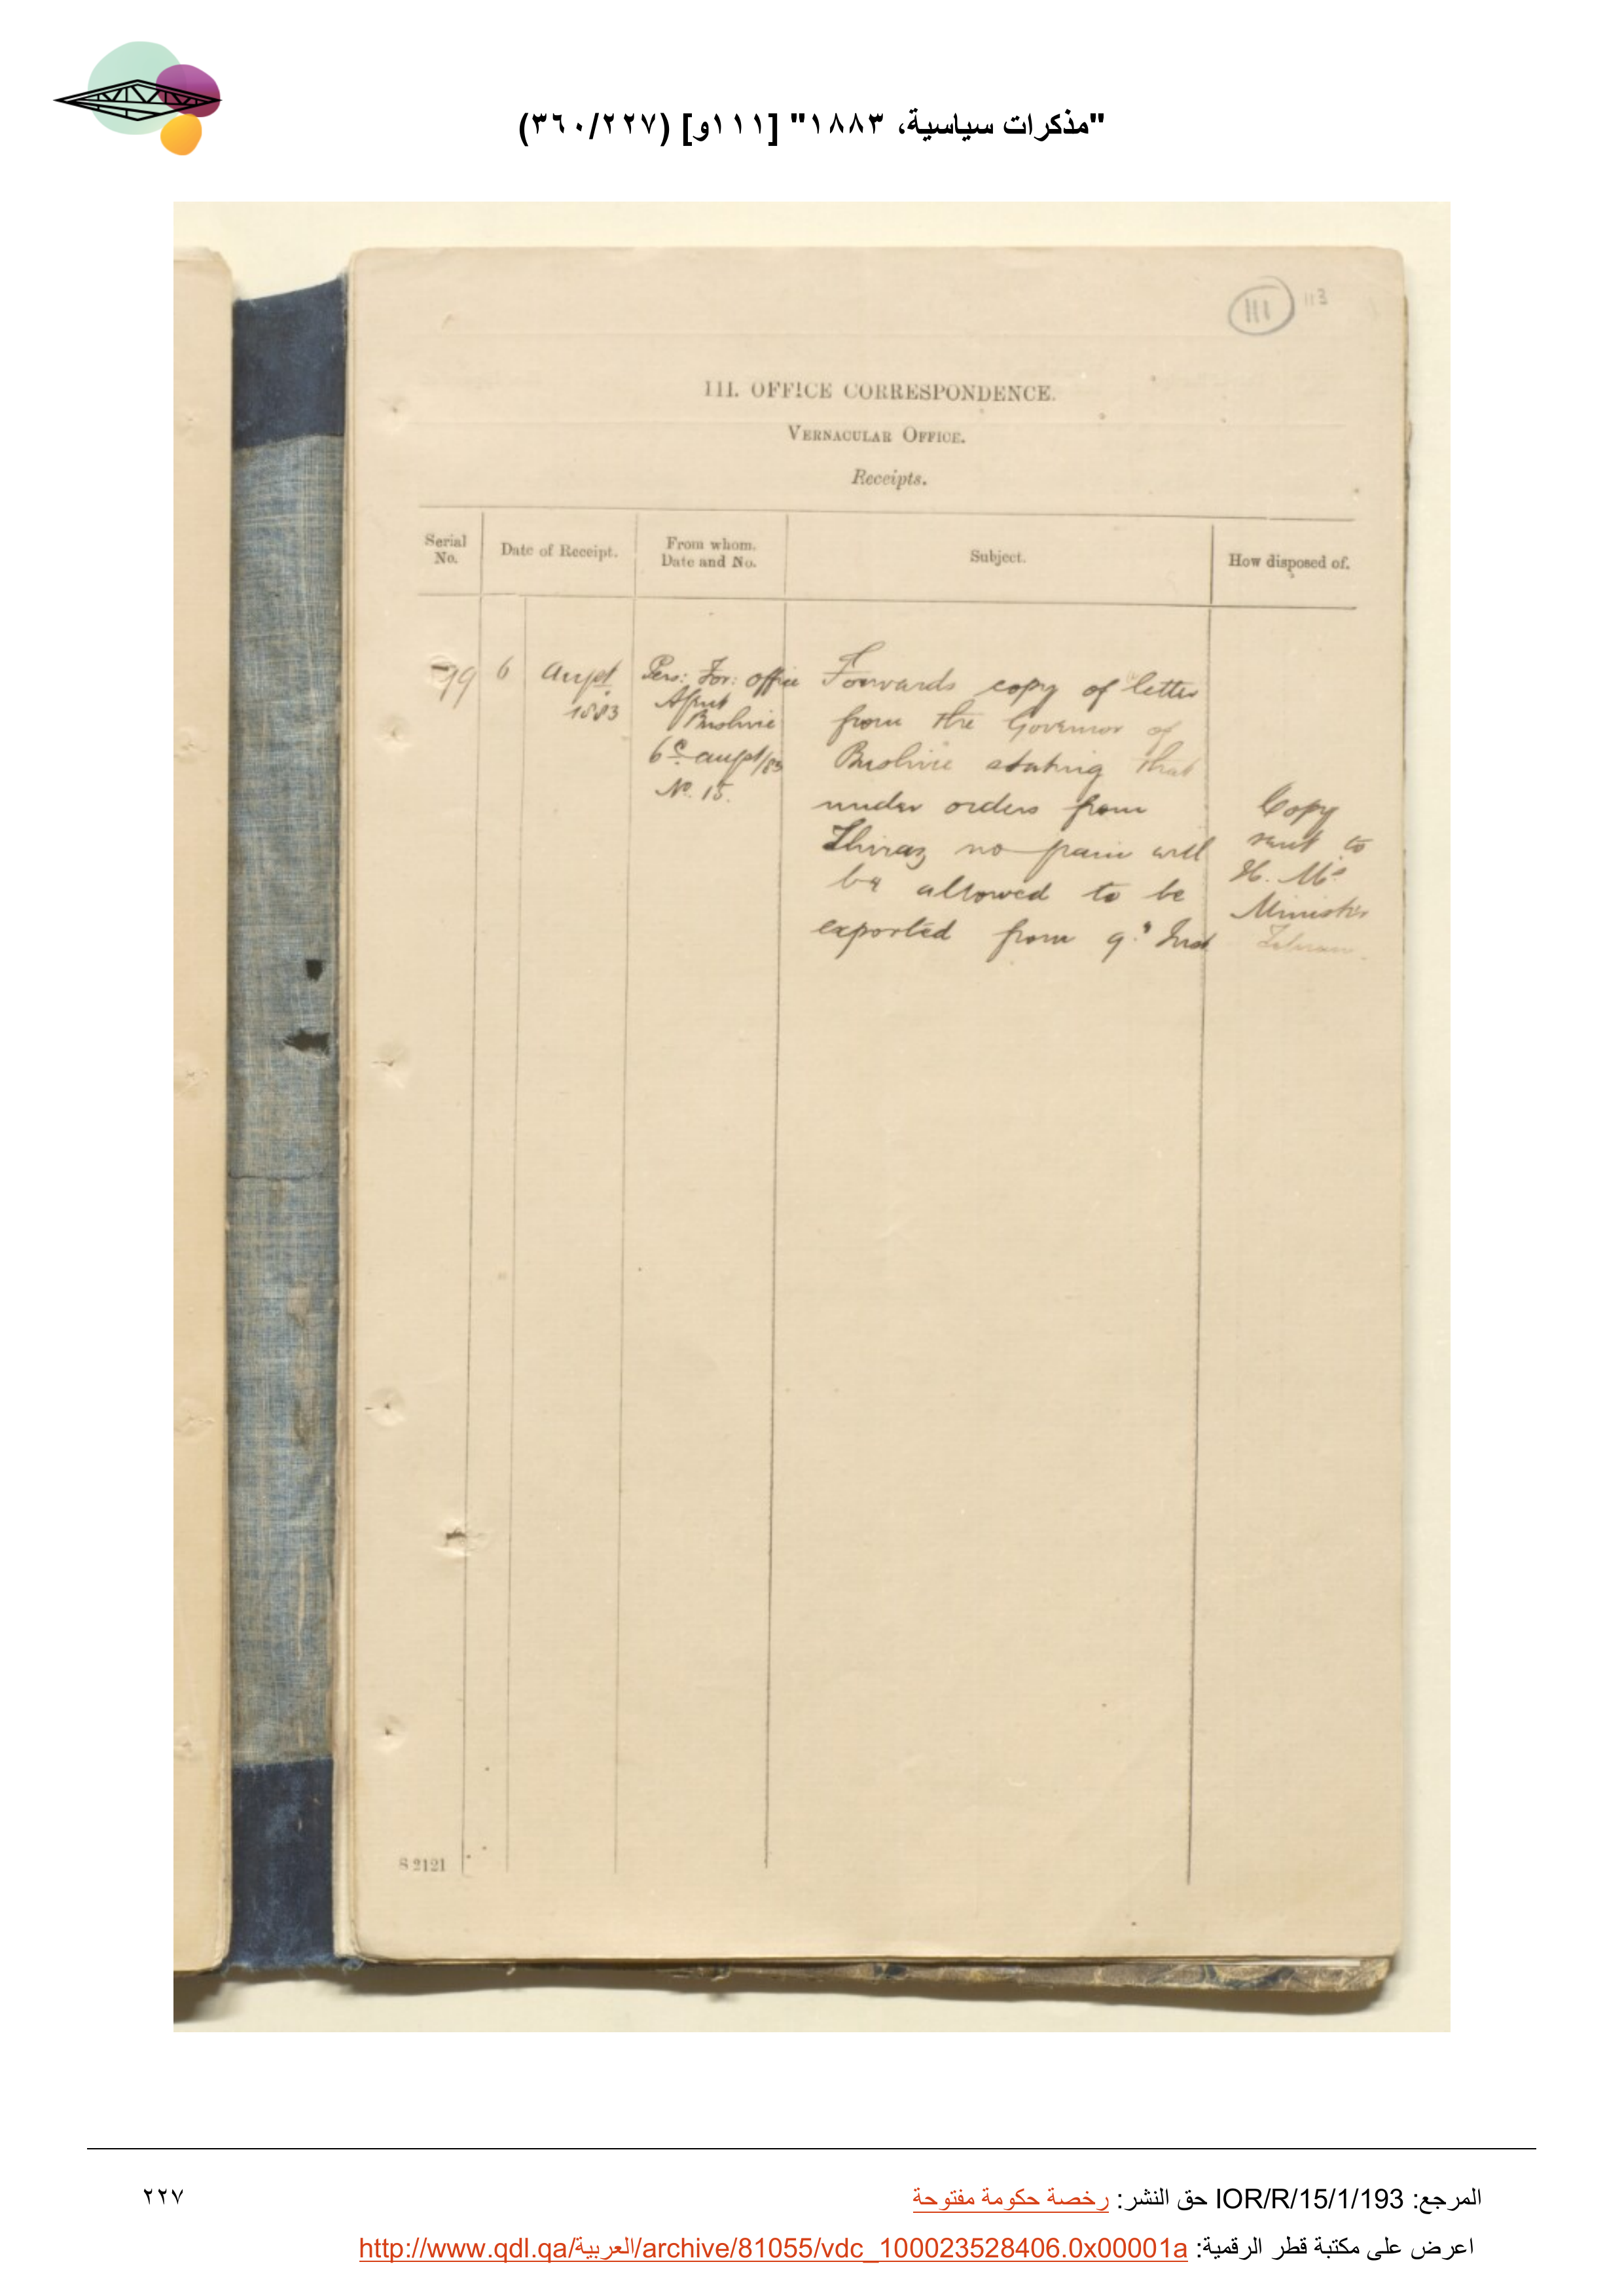 "مذكرات سياسية، ١٨٨٣" [١١١و] (٣٦٠/٢٢٧)
111
113
III. OFFICE CORRESPONDENCE.
VERNACULAR OFFICE.
Receipts.
Serial No.
Date of Receipt.
From whom. Date and No.
Subject.
How disposed of.
79
6 Augst 1883
Pers: For: office
Agent
Bushire
6th augst/83
No. 15.
Forwards copy of letter
from the Governor of
Bushire stating that
under orders from
Shiraz no grain will
be allowed to be
exported from 9th Inst
Copy
sent to
H. M's
Minister
Tehran.
S 2121
المرجع: IOR/R/15/1/193 حق النشر: رخصة حكومة مفتوحة
٢٢٧
اعرض على مكتبة قطر الرقمية: http://www.qdl.qa/العربية/archive/81055/vdc_100023528406.0x00001a